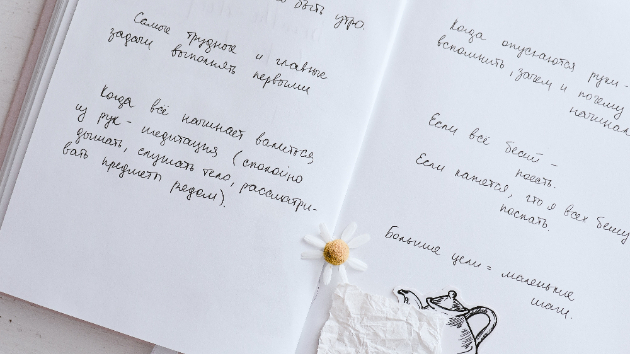 быть утро
Самые трудные и главные
задачи выполнять первыми
Когда всё начинает валиться
из рук - медитация (спокойно
дышать, слушать тело, рассматри-
вать предметы рядом).
Когда опускаются руки -
вспомнить, зачем и почему
начинал
Если всё бесит -
поесть.
Если кажется, что я всех бешу
поспать.
Большие цели = маленькие
шаги.